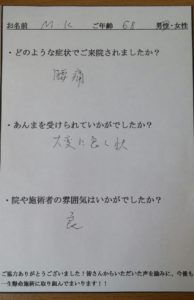 お名前 M K ご年齢 68 男性・女性
・どのような症状でご来院されましたか？
腰痛
・あんまを受けられていかがでしたか？
大変に良く
・院や施術者の雰囲気はいかがでしたか？
良
ご協力ありがとうございました！皆さんからいただいた声を励みに、今後も
一生懸命施術に取り組んでまいります！！